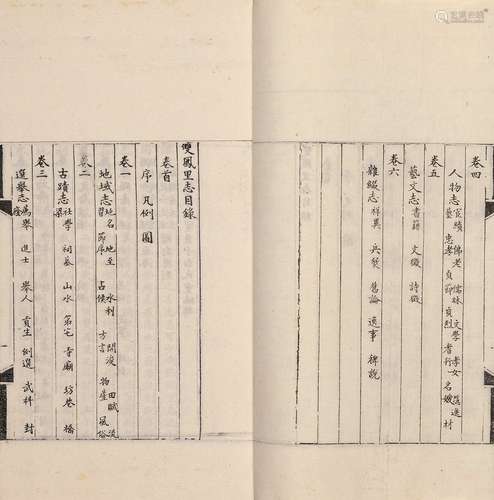 雙鳳里志目錄
卷首
序 凡例 圖
卷一
地域志 地名 地至 水利 開浚 田賦 節序 占候 方言 物產 風俗
卷二
古蹟志 社學 祠墓 山水 第宅 寺廟 坊巷 橋梁
卷三
選舉志 薦舉 進士 舉人 貢生 例選 武科 封
卷四
人物志 宦蹟 儒林 文學 忠孝 貞節 貞烈 孝女 耆行 名媛
卷五
藝文志 書籍 文徵 詩徵
卷六
雜綴志 祥異 兵燹 舊論 逸事 稗說